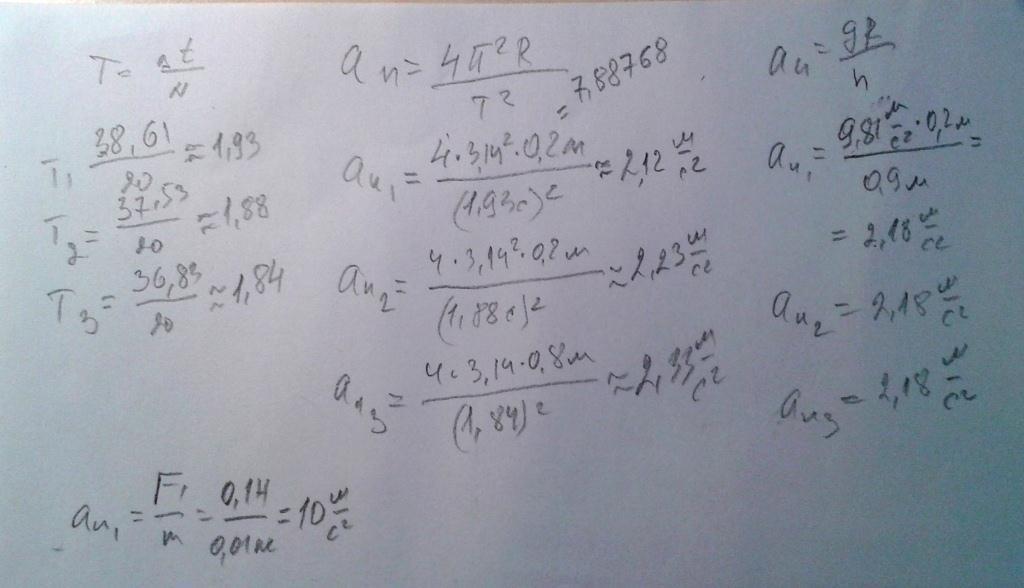 T = Δt/N
T₁ 38,61/20 ≈ 1,93
T₂ = 37,53/20 ≈ 1,88
T₃ = 36,83/20 ≈ 1,84
aₙ = 4π²R/T² = 7,88768
aₙ₁ = 4·3,14²·0,2м/(1,93с)² ≈ 2,12 м/с²
aₙ₂ = 4·3,14²·0,2м/(1,88с)² ≈ 2,23 м/с²
aₙ₃ = 4·3,14·0,8м/(1,84)² ≈ 2,33 м/с²
aₙ = gR/h
aₙ₁ = 9,81 м/с²·0,2м/0,9м =
= 2,18 м/с²
aₙ₂ = 2,18 м/с²
aₙ₃ = 2,18 м/с²
aₙ₁ = F₁/m = 0,14/0,01 = 10 м/с²